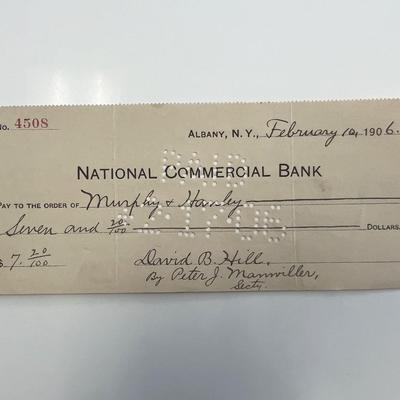 No. 4508
ALBANY, N.Y., February 10, 1906.
NATIONAL COMMERCIAL BANK
PAY TO THE ORDER OF Murphy & Hanley
Seven and 20/100 DOLLARS.
$ 7. 20/100
David B. Hill.
By Peter J. Manwiller,
Secty.
2-17-06